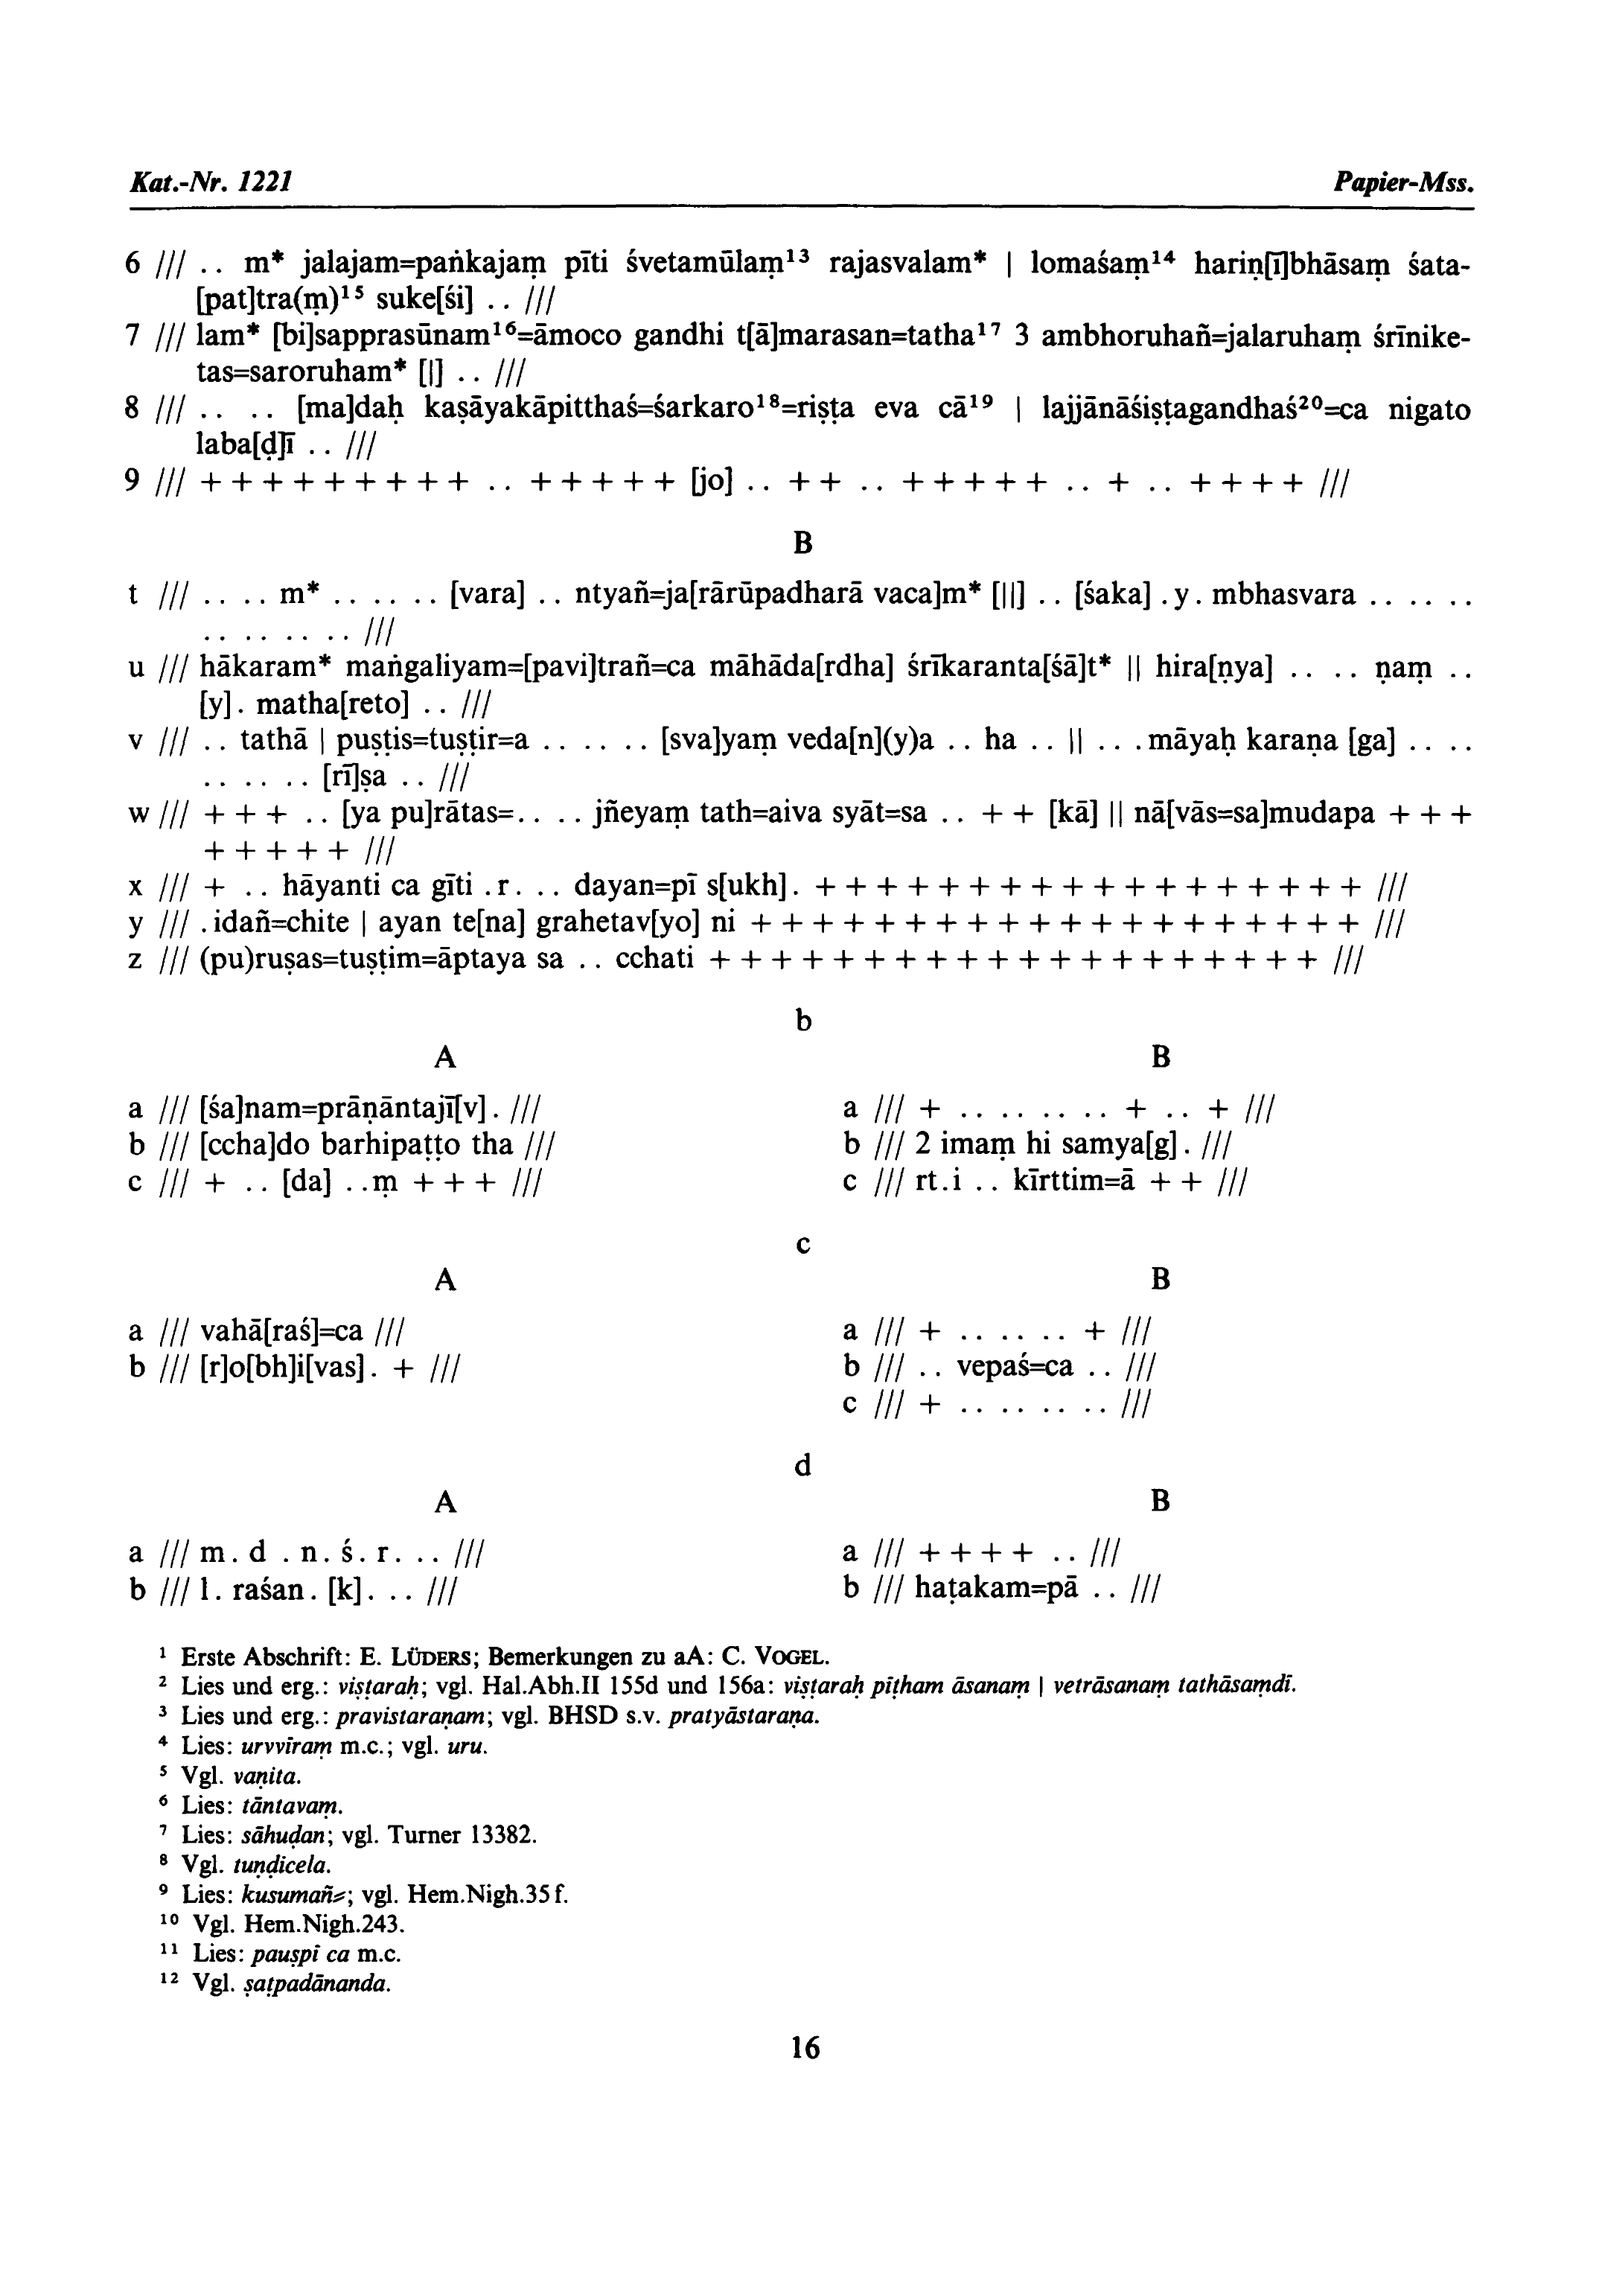 Kat.-Nr. 1221 Papier-Mss.
6 /// .. m* jalajam=paṅkajaṃ pīti śvetamūlaṃ¹³ rajasvalam* | lomaśaṃ¹⁴ hariṇ[ī]bhāsaṃ śata-
[pat]tra(ṃ)¹⁵ suke[śi] .. ///
7 /// lam* [bi]sapprasūnam¹⁶=āmoco gandhi t[ā]marasan=tatha¹⁷ 3 ambhoruhañ=jalaruhaṃ śrīnike-
tas=saroruham* [|] .. ///
8 /// .. .. [ma]daḥ kaṣāyakāpitthaś=śarkaro¹⁸=riṣṭa eva cā¹⁹ | lajjānāśiṣṭagandhaś²⁰=ca nigato
laba[ḍ]ī .. ///
9 /// + + + + + + + + + .. + + + + + [jo] .. + + .. + + + + + .. + .. + + + + ///
B
t /// .. .. m* .. .. .. [vara] .. ntyañ=ja[rārūpadharā vaca]m* [||] .. [śaka] .y. mbhasvara .. .. ..
.. .. .. .. ///
u /// hākaram* maṅgaliyam=[pavi]trañ=ca māhāda[rdha] śrīkaranta[śā]t* || hira[ṇya] .. .. ṇaṃ ..
[y]. matha[reto] .. ///
v /// .. tathā | puṣṭis=tuṣṭir=a .. .. .. [sva]yaṃ veda[n](y)a .. ha .. || .. .māyaḥ karaṇa [ga] .. ..
.. .. .. [rī]ṣa .. ///
w /// + + + .. [ya pu]rātas=.. .. jñeyaṃ tath=aiva syāt=sa .. + + [kā] || nā[vās=sa]mudapa + + +
+ + + + + ///
x /// + .. hāyanti ca gīti .r. .. dayan=pī s[ukh]. + + + + + + + + + + + + + + + + + + ///
y /// .idañ=chite | ayan te[na] grahetav[yo] ni + + + + + + + + + + + + + + + + + + + + ///
z /// (pu)ruṣas=tuṣṭim=āptaya sa .. cchati + + + + + + + + + + + + + + + + + + + + ///
b
A B
a /// [śa]nam=prāṇāntajī[v]. /// a /// + .. .. .. .. + .. + ///
b /// [ccha]do barhipaṭṭo tha /// b /// 2 imaṃ hi samya[g]. ///
c /// + .. [da] ..ṃ + + + /// c /// rt.i .. kīrttim=ā + + ///
c
A B
a /// vahā[raś]=ca /// a /// + .. .. .. + ///
b /// [r]o[bh]i[vas]. + /// b /// .. vepaś=ca .. ///
c /// + .. .. .. .. ///
d
A B
a /// m. d .n. ś. r. .. /// a /// + + + + .. ///
b /// l. raśan. [k]. .. /// b /// haṭakam=pā .. ///
¹ Erste Abschrift: E. LÜDERS; Bemerkungen zu aA: C. VOGEL.
² Lies und erg.: viṣṭaraḥ; vgl. Hal.Abh.II 155d und 156a: viṣṭaraḥ pīṭham āsanaṃ | vetrāsanaṃ tathāsaṃdī.
³ Lies und erg.: pravistaraṇam; vgl. BHSD s.v. pratyāstaraṇa.
⁴ Lies: urvvīraṃ m.c.; vgl. uru.
⁵ Vgl. vaṇita.
⁶ Lies: tāntavaṃ.
⁷ Lies: sāhuḍan; vgl. Turner 13382.
⁸ Vgl. tuṇḍicela.
⁹ Lies: kusumañ=; vgl. Hem.Nigh.35 f.
¹⁰ Vgl. Hem.Nigh.243.
¹¹ Lies: pauṣpī ca m.c.
¹² Vgl. ṣaṭpadānanda.
16